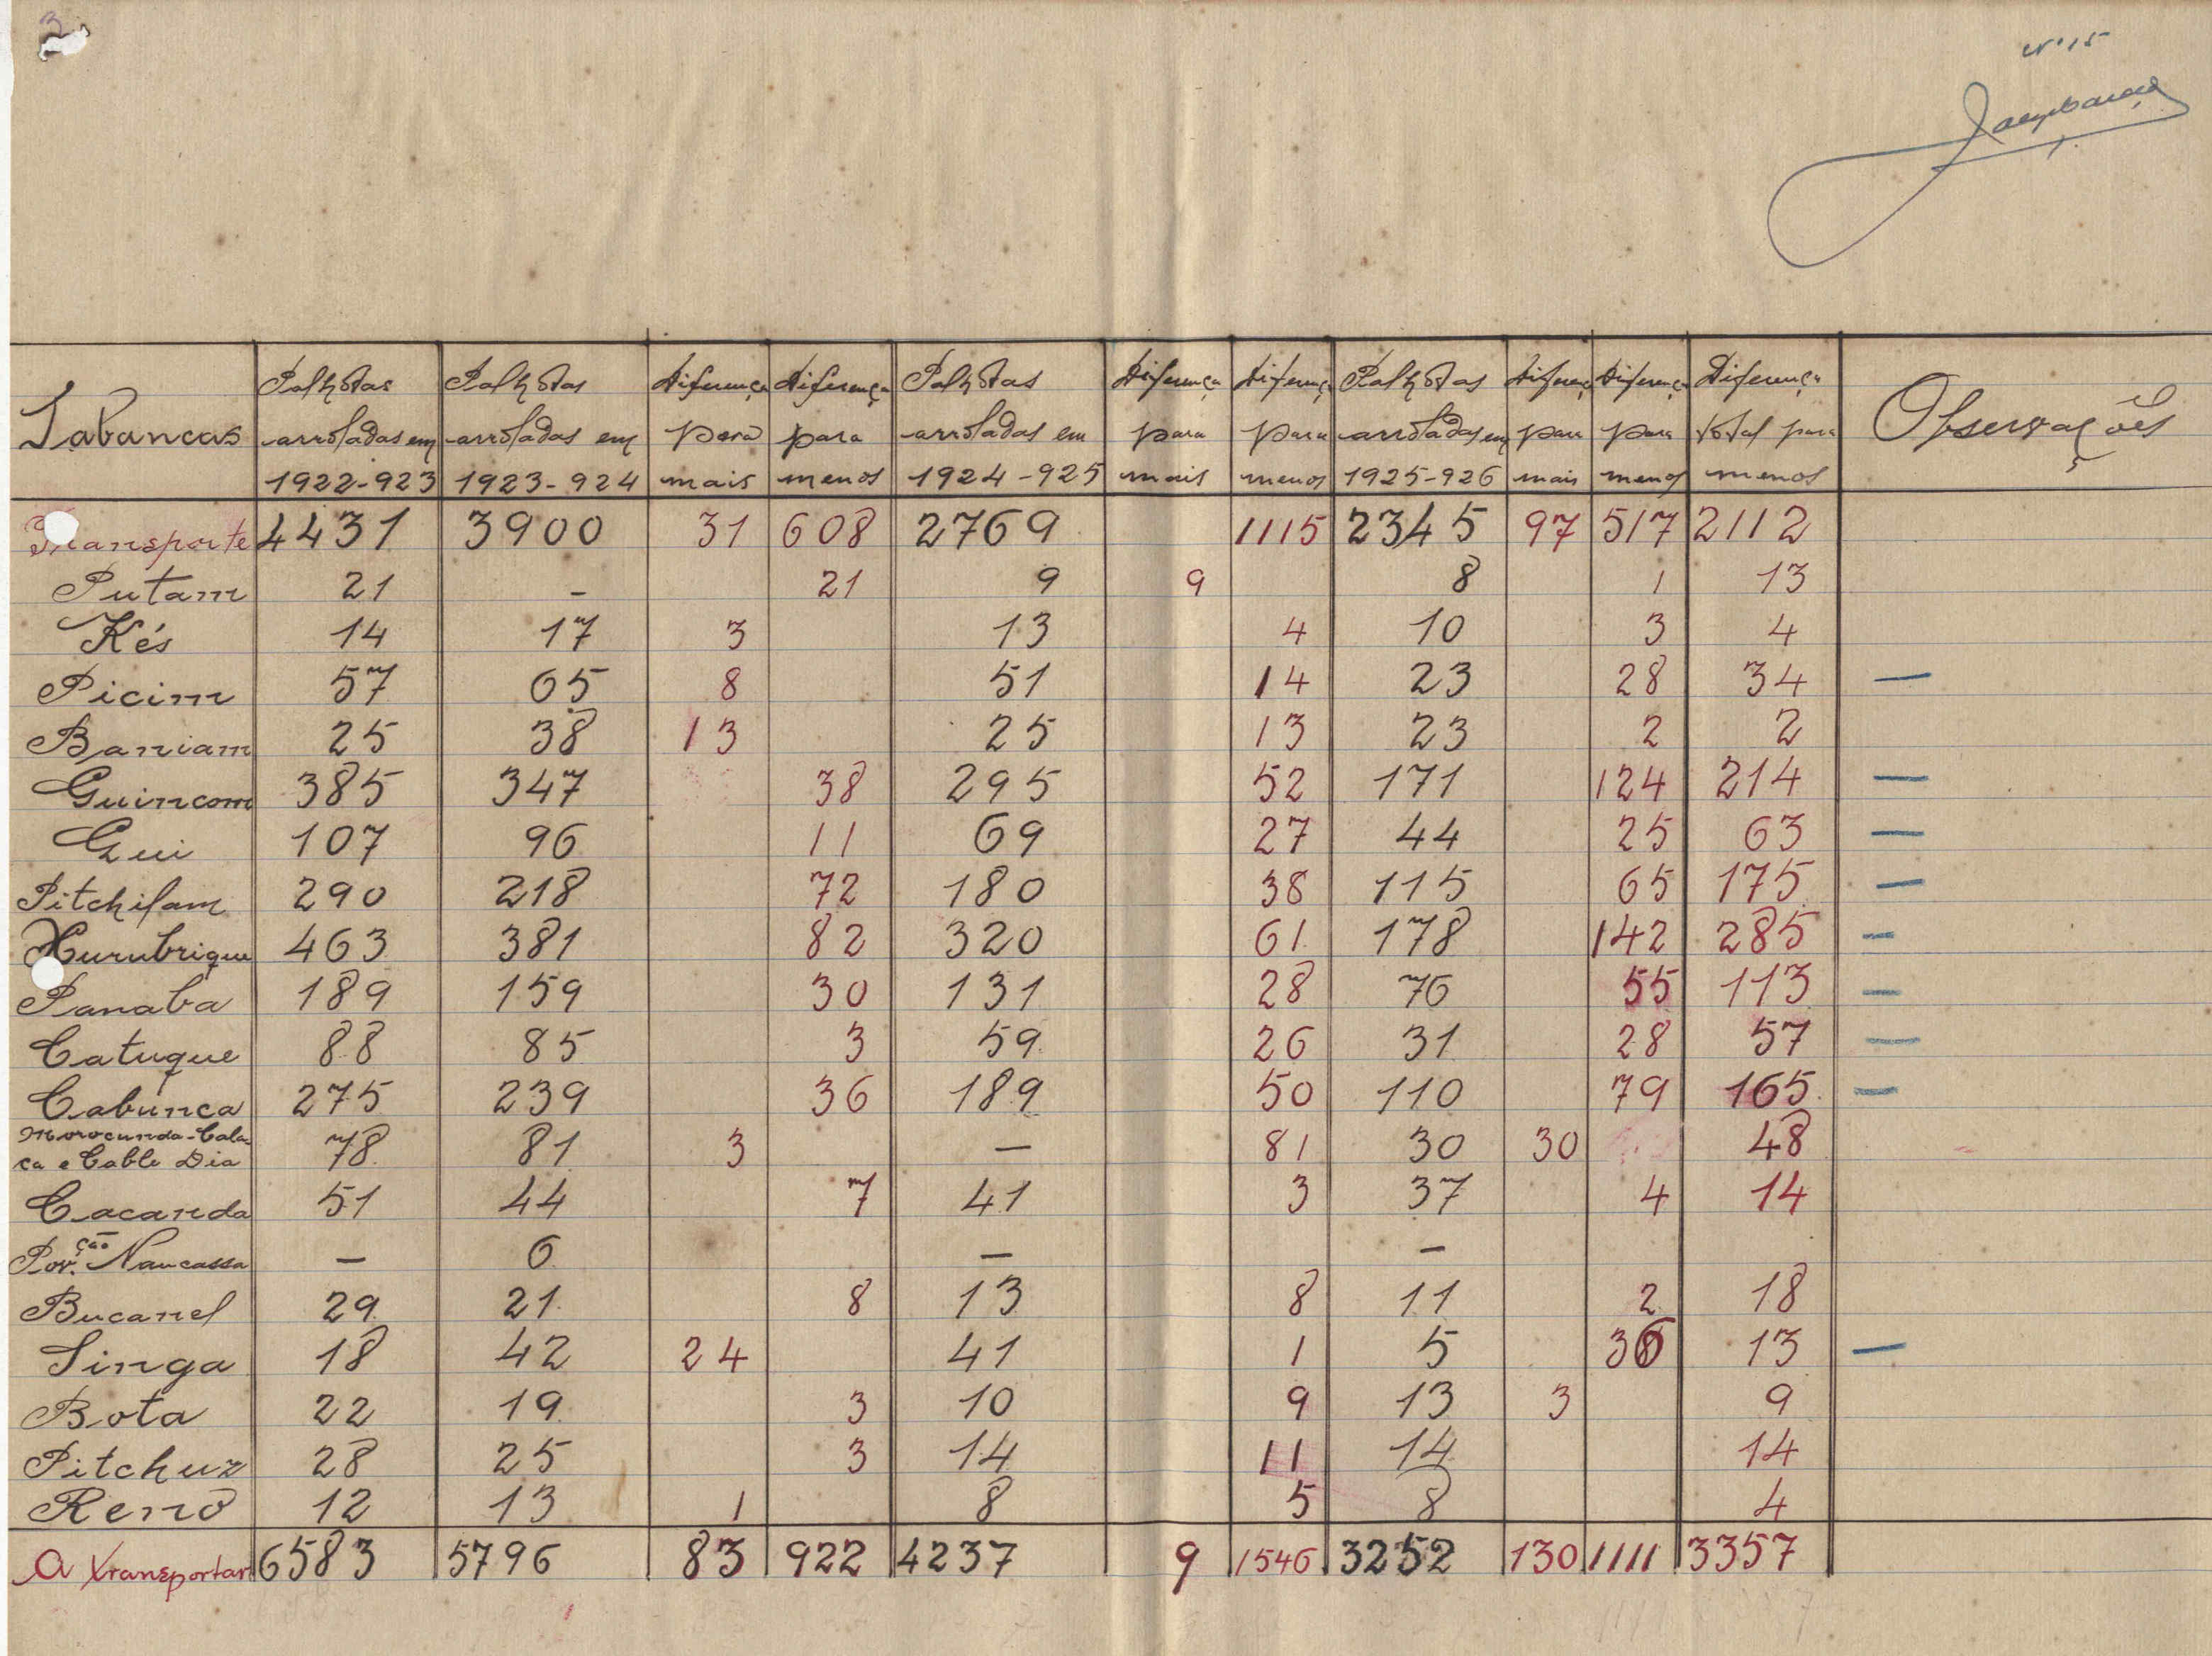 3
Nº 15
Tabancas | Palhotas arroladas em 1922-923 | Palhotas arroladas em 1923-924 | Diferença para mais | Diferença para menos | Palhotas arroladas em 1924-925 | Diferença para mais | Diferença para menos | Palhotas arroladas em 1925-926 | Diferença para mais | Diferença para menos | Diferença total para menos | Observações
Transporte | 4431 | 3900 | 31 | 608 | 2769 | | 1115 | 2345 | 97 | 517 | 2112 |
Putam | 21 | – | | 21 | 9 | 9 | | 8 | | 1 | 13 |
Kés | 14 | 17 | 3 | | 13 | | 4 | 10 | | 3 | 4 |
Picim | 57 | 65 | 8 | | 51 | | 14 | 23 | | 28 | 34 | —
Baniam | 25 | 38 | 13 | | 25 | | 13 | 23 | | 2 | 2 |
Guincom | 385 | 347 | | 38 | 295 | | 52 | 171 | | 124 | 214 | —
Gui | 107 | 96 | | 11 | 69 | | 27 | 44 | | 25 | 63 | —
Pitchilam | 290 | 218 | | 72 | 180 | | 38 | 115 | | 65 | 175 | —
Xurubrique | 463 | 381 | | 82 | 320 | | 61 | 178 | | 142 | 285 | —
Panaba | 189 | 159 | | 30 | 131 | | 28 | 76 | | 55 | 113 | —
Catuque | 88 | 85 | | 3 | 59 | | 26 | 31 | | 28 | 57 | —
Cabunca | 275 | 239 | | 36 | 189 | | 50 | 110 | | 79 | 165 | —
Morocunda-Cala-
ca e Cable Dia | 78 | 81 | 3 | | — | | 81 | 30 | 30 | | 48 |
Cacanda | 51 | 44 | | 7 | 41 | | 3 | 37 | | 4 | 14 |
Pov.ção Naucassa | — | 6 | | | — | | | – | | | |
Bucanel | 29 | 21 | | 8 | 13 | | 8 | 11 | | 2 | 18 |
Singa | 18 | 42 | 24 | | 41 | | 1 | 5 | | 36 | 13 | —
Bota | 22 | 19 | | 3 | 10 | | 9 | 13 | 3 | | 9 |
Pitchuz | 28 | 25 | | 3 | 14 | | 11 | 14 | | | 14 |
Renô | 12 | 13 | 1 | | 8 | | 5 | 8 | | | 4 |
A transportar | 6583 | 5796 | 83 | 922 | 4237 | 9 | 1546 | 3252 | 130 | 1111 | 3357 |